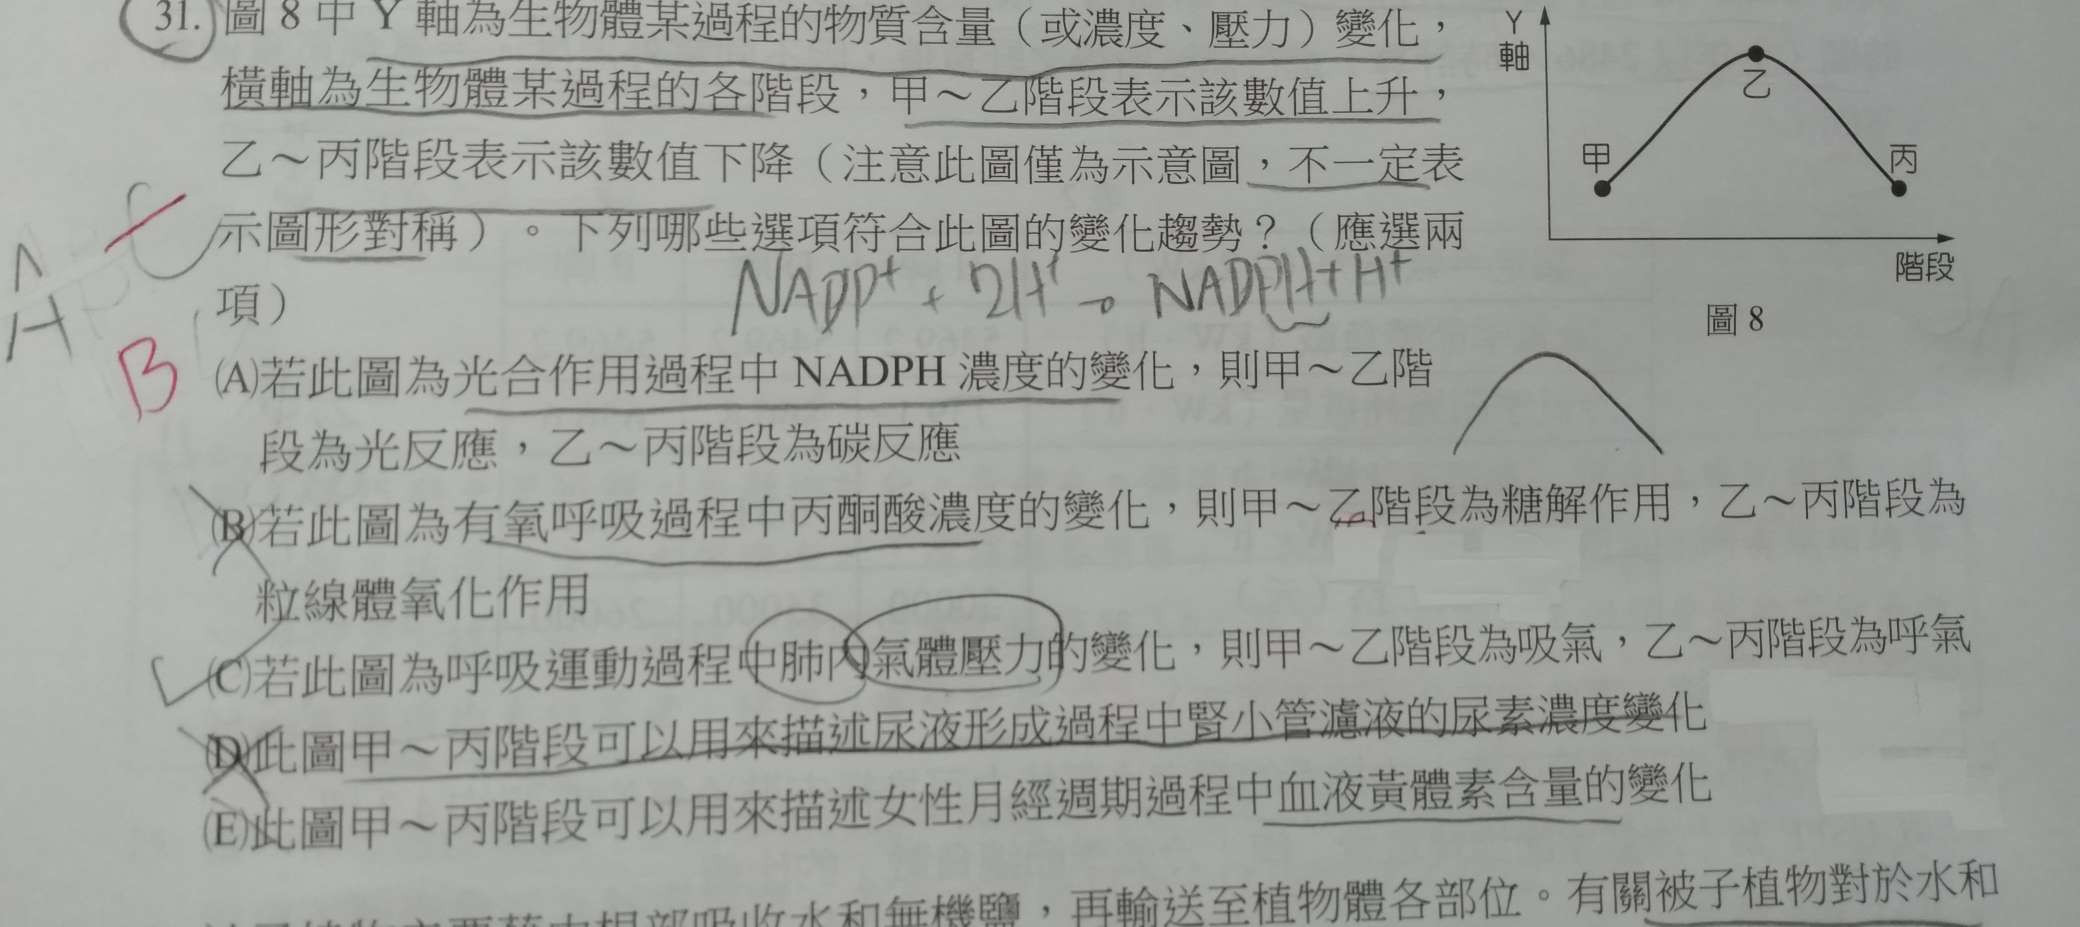 31. 圖 8 中 Y 軸為生物體某過程的物質含量（或濃度、壓力）變化，
橫軸為生物體某過程的各階段，甲～乙階段表示該數值上升，
乙～丙階段表示該數值下降（注意此圖僅為示意圖，不一定表
示圖形對稱）。下列哪些選項符合此圖的變化趨勢？（應選兩
項）
Y
軸
乙
甲
丙
階段
圖 8
NADP⁺ + 2H⁺ → NADPH + H⁺
A
B
(A)若此圖為光合作用過程中 NADPH 濃度的變化，則甲～乙階
段為光反應，乙～丙階段為碳反應
(B)若此圖為有氧呼吸過程中丙酮酸濃度的變化，則甲～乙階段為糖解作用，乙～丙階段為
粒線體氧化作用
(C)若此圖為呼吸運動過程中肺內氣體壓力的變化，則甲～乙階段為吸氣，乙～丙階段為呼氣
(D)此圖甲～丙階段可以用來描述尿液形成過程中腎小管濾液的尿素濃度變化
(E)此圖甲～丙階段可以用來描述女性月經週期過程中血液黃體素含量的變化
根部吸收水和無機鹽，再輸送至植物體各部位。有關被子植物對於水和